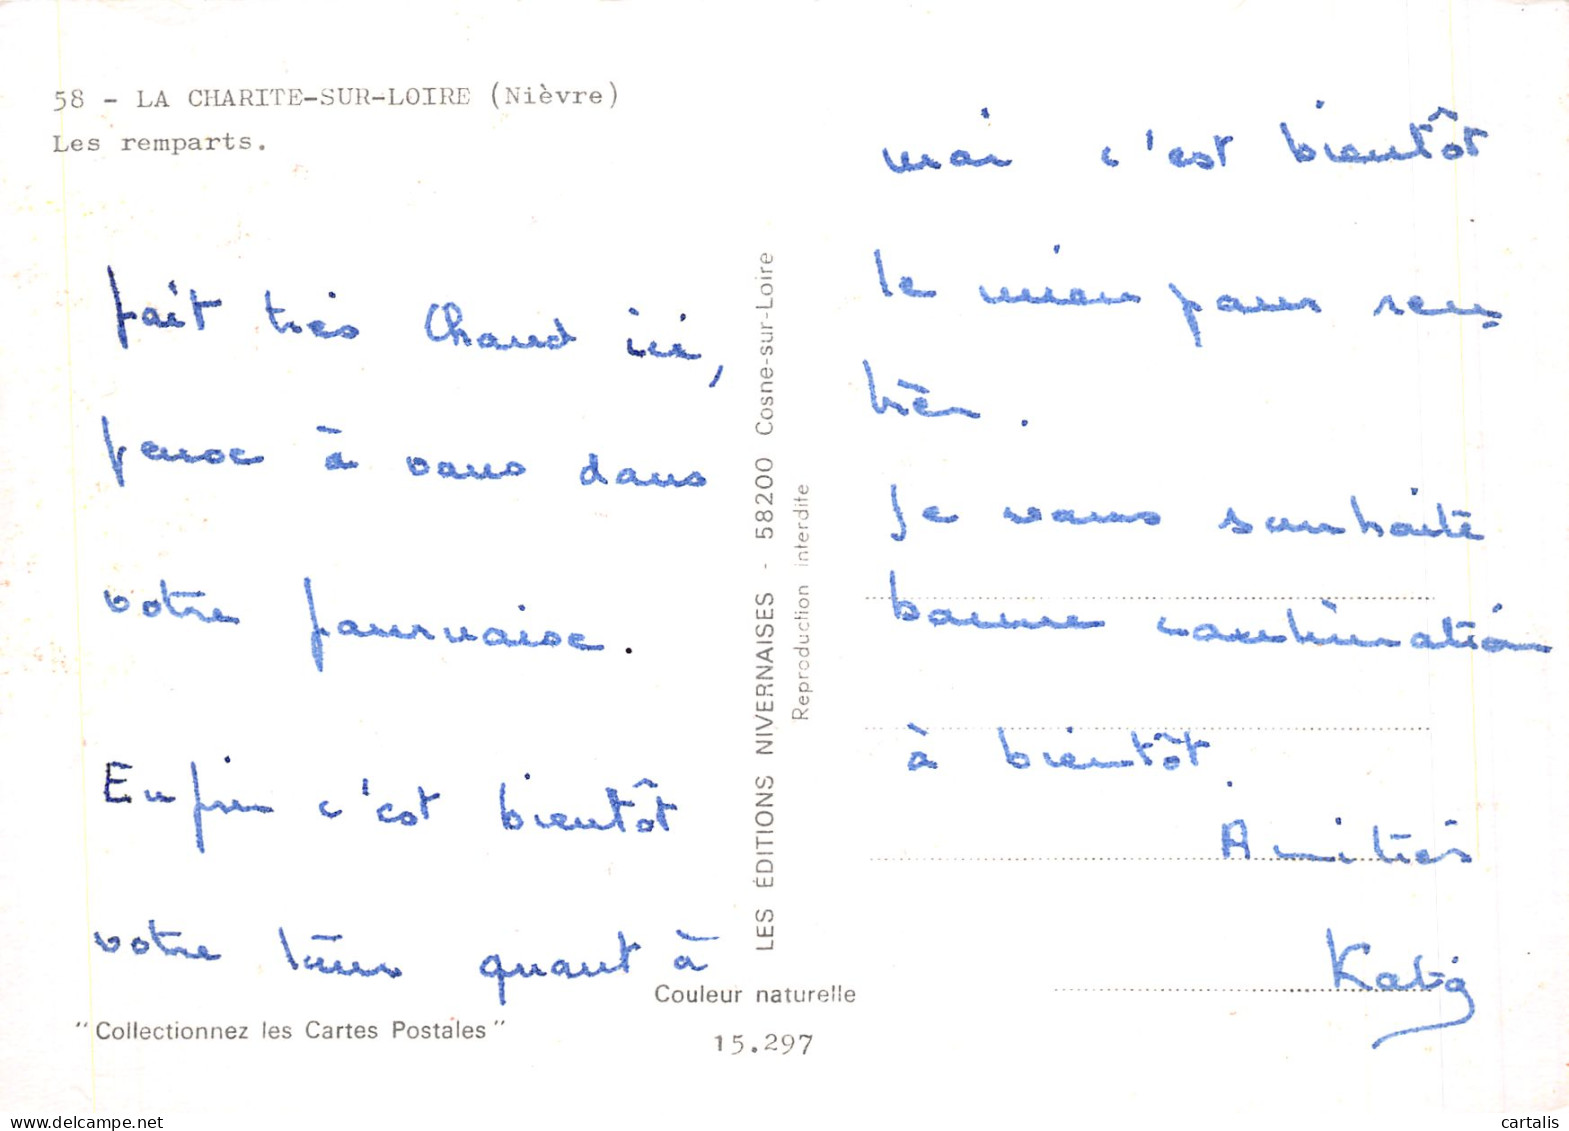 58 - LA CHARITE-SUR-LOIRE (Nièvre)
Les remparts.
fait très Chaud ici,
pense à vous dans
votre fournaise.
Enfin c'est bientôt
votre tour quant à
"Collectionnez les Cartes Postales"
LES ÉDITIONS NIVERNAISES - 58200 Cosne-sur-Loire
Reproduction interdite
Couleur naturelle
15.297
moi c'est bientôt
le mien
bien.
Je vous souhaite
bonne continuation
à bientôt.
Amitiés
Katy
cartalis